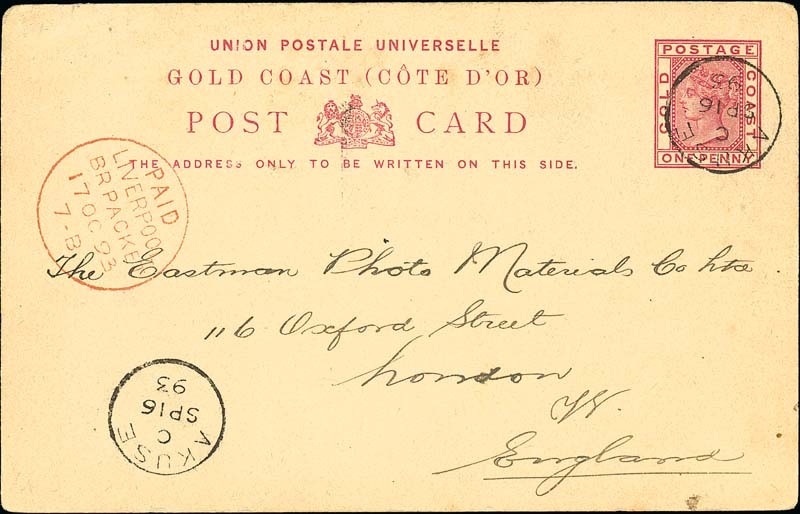 UNION POSTALE UNIVERSELLE
GOLD COAST (CÔTE D'OR)
POST CARD
THE ADDRESS ONLY TO BE WRITTEN ON THIS SIDE.
POSTAGE
GOLD
COAST
ONE PENNY
AKUSE
C
SP 16
93
PAID
LIVERPOOL
BR PACKET
17 OC 93
7-B
The Eastman Photo Materials Co Ltd.
116 Oxford Street
London
W.
England
AKUSE
C
SP 16
93